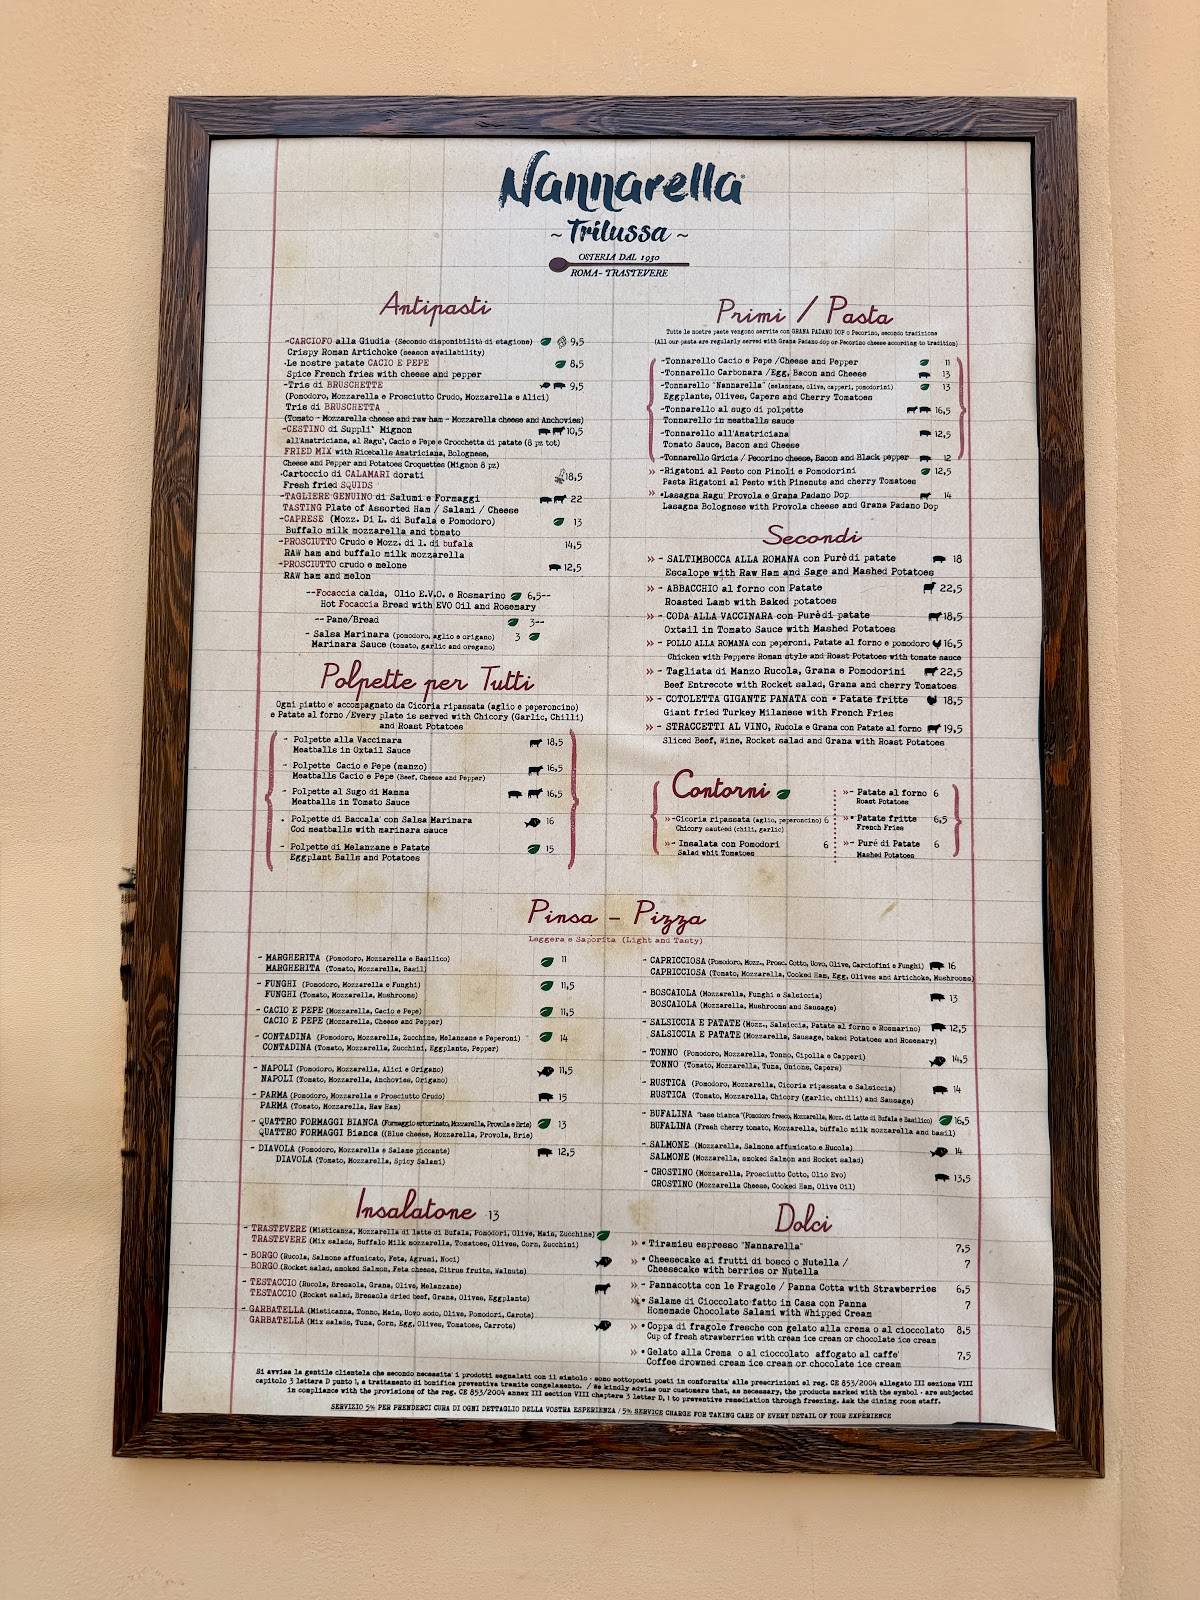 Nannarella
~ Trilussa ~
OSTERIA DAL 1930
ROMA - TRASTEVERE
Antipasti
-CARCIOFO alla Giudia (Secondo disponibilità di stagione) 9,5
Crispy Roman Artichoke (season availability)
-Le nostre patate CACIO E PEPE 8,5
Spice French fries with cheese and pepper
-Tris di BRUSCHETTE 9,5
(Pomodoro, Mozzarella e Prosciutto Crudo, Mozzarella e Alici)
Tris di BRUSCHETTA
(Tomato - Mozzarella cheese and raw ham - Mozzarella cheese and Anchovies)
-CESTINO di Suppli' Mignon 10,5
all'Amatriciana, al Ragu', Cacio e Pepe e Crocchetta di patate (8 pz tot)
FRIED MIX with Riceballs Amatriciana, Bolognese,
Cheese and Pepper and Potatoes Croquettes (Mignon 8 pz)
·Cartoccio di CALAMARI dorati 18,5
Fresh fried SQUIDS
-TAGLIERE GENUINO di Salumi e Formaggi 22
TASTING Plate of Assorted Ham / Salami / Cheese
-CAPRESE (Mozz. Di L. di Bufala e Pomodoro) 13
Buffalo milk mozzarella and tomato
-PROSCIUTTO Crudo e Mozz. di l. di bufala 14,5
RAW ham and buffalo milk mozzarella
-PROSCIUTTO crudo e melone 12,5
RAW ham and melon
--Focaccia calda, Olio E.V.O. e Rosmarino 6,5--
Hot Focaccia Bread with EVO Oil and Rosemary
-- Pane/Bread 3--
- Salsa Marinara (pomodoro, aglio e origano) 3
Marinara Sauce (tomato, garlic and oregano)
Polpette per Tutti
Ogni piatto e' accompagnato da Cicoria ripassata (aglio e peperoncino)
e Patate al forno /Every plate is served with Chicory (Garlic, Chilli)
and Roast Potatoes
- Polpette alla Vaccinara 18,5
Meatballs in Oxtail Sauce
- Polpette Cacio e Pepe (manzo) 16,5
Meatballs Cacio e Pepe (Beef, Cheese and Pepper)
- Polpette al Sugo di Mamma 16,5
Meatballs in Tomato Sauce
• Polpette di Baccala' con Salsa Marinara 16
Cod meatballs with marinara sauce
- Polpette di Melanzane e Patate 15
Eggplant Balls and Potatoes
Primi / Pasta
Tutte le nostre paste vengono servite con GRANA PADANO DOP o Pecorino, secondo tradizione
(All our pasta are regularly served with Grana Padano dop or Pecorino cheese according to tradition)
-Tonnarello Cacio e Pepe /Cheese and Pepper 11
-Tonnarello Carbonara /Egg, Bacon and Cheese 13
-Tonnarello "Nannarella" (melanzane, olive, capperi, pomodorini) 13
Eggplants, Olives, Capers and Cherry Tomatoes
-Tonnarello al sugo di polpette 16,5
Tonnarello in meatballs sauce
-Tonnarello all'Amatriciana 12,5
Tomato Sauce, Bacon and Cheese
-Tonnarello Gricia / Pecorino cheese, Bacon and Black pepper 12
» -Rigatoni al Pesto con Pinoli e Pomodorini 12,5
Pasta Rigatoni al Pesto with Pinenuts and cherry Tomatoes
» •Lasagna Ragu' Provola e Grana Padano Dop 14
Lasagna Bolognese with Provola cheese and Grana Padano Dop
Secondi
» - SALTIMBOCCA ALLA ROMANA con Purè di patate 18
Escalope with Raw Ham and Sage and Mashed Potatoes
» - ABBACCHIO al forno con Patate 22,5
Roasted Lamb with Baked potatoes
» - CODA ALLA VACCINARA con Purè di patate 18,5
Oxtail in Tomato Sauce with Mashed Potatoes
» - POLLO ALLA ROMANA con peperoni, Patate al forno e pomodoro 16,5
Chicken with Peppers Roman style and Roast Potatoes with tomate sauce
» - Tagliata di Manzo Rucola, Grana e Pomodorini 22,5
Beef Entrecote with Rocket salad, Grana and cherry Tomatoes
» - COTOLETTA GIGANTE PANATA con • Patate fritte 18,5
Giant fried Turkey Milanese with French Fries
» - STRACCETTI AL VINO, Rucola e Grana con Patate al forno 19,5
Sliced Beef, Wine, Rocket salad and Grana with Roast Potatoes
Contorni
»-Cicoria ripassata (aglio, peperoncino) 6
Chicory sauteed (chili, garlic)
»- Insalata con Pomodori 6
Salad whit Tomatoes
»- Patate al forno 6
Roast Potatoes
»• Patate fritte 6,5
French Fries
»- Purè di Patate 6
Mashed Potatoes
Pinsa - Pizza
Leggera e Saporita (Light and Tasty)
- MARGHERITA (Pomodoro, Mozzarella e Basilico) 11
MARGHERITA (Tomato, Mozzarella, Basil)
- FUNGHI (Pomodoro, Mozzarella e Funghi) 11,5
FUNGHI (Tomato, Mozzarella, Mushrooms)
- CACIO E PEPE (Mozzarella, Cacio e Pepe) 11,5
CACIO E PEPE (Mozzarella, Cheese and Pepper)
- CONTADINA (Pomodoro, Mozzarella, Zucchine, Melanzane e Peperoni) 14
CONTADINA (Tomato, Mozzarella, Zucchini, Eggplants, Pepper)
- NAPOLI (Pomodoro, Mozzarella, Alici e Origano) 11,5
NAPOLI (Tomato, Mozzarella, Anchovies, Origano)
- PARMA (Pomodoro, Mozzarella e Prosciutto Crudo) 15
PARMA (Tomato, Mozzarella, Raw Ham)
- QUATTRO FORMAGGI BIANCA (Formaggio erborinato, Mozzarella, Provola e Brie) 13
QUATTRO FORMAGGI Bianca (Blue cheese, Mozzarella, Provola, Brie)
- DIAVOLA (Pomodoro, Mozzarella e Salame piccante) 12,5
DIAVOLA (Tomato, Mozzarella, Spicy Salami)
- CAPRICCIOSA (Pomodoro, Mozz., Prosc. Cotto, Uovo, Olive, Carciofini e Funghi) 16
CAPRICCIOSA (Tomato, Mozzarella, Cooked Ham, Egg, Olives and Artichoke, Mushrooms)
- BOSCAIOLA (Mozzarella, Funghi e Salsiccia) 13
BOSCAIOLA (Mozzarella, Mushrooms and Sausage)
- SALSICCIA E PATATE (Mozz., Salsiccia, Patate al forno e Rosmarino) 12,5
SALSICCIA E PATATE (Mozzarella, Sausage, baked Potatoes and Rosemary)
- TONNO (Pomodoro, Mozzarella, Tonno, Cipolla e Capperi) 14,5
TONNO (Tomato, Mozzarella, Tuna, Onions, Capers)
- RUSTICA (Pomodoro, Mozzarella, Cicoria ripassata e Salsiccia) 14
RUSTICA (Tomato, Mozzarella, Chicory (garlic, chilli) and Sausage)
- BUFALINA "base bianca" (Pomodoro fresco, Mozzarella, Mozz. di Latte di Bufala e Basilico) 16,5
BUFALINA (Fresh cherry tomato, Mozzarella, buffalo milk mozzarella and basil)
- SALMONE (Mozzarella, Salmone affumicato e Rucola) 14
SALMONE (Mozzarella, smoked Salmon and Rocket salad)
- CROSTINO (Mozzarella, Prosciutto Cotto, Olio Evo) 13,5
CROSTINO (Mozzarella Cheese, Cooked Ham, Olive Oil)
Insalatone 13
- TRASTEVERE (Misticanza, Mozzarella di latte di Bufala, Pomodori, Olive, Mais, Zucchine)
TRASTEVERE (Mix salads, Buffalo Milk mozzarella, Tomatoes, Olives, Corn, Zucchini)
- BORGO (Rucola, Salmone affumicato, Feta, Agrumi, Noci)
BORGO (Rocket salad, smoked Salmon, Feta cheese, Citrus fruits, Walnuts)
- TESTACCIO (Rucola, Bresaola, Grana, Olive, Melanzane)
TESTACCIO (Rocket salad, Bresaola dried beef, Grana, Olives, Eggplants)
- GARBATELLA (Misticanza, Tonno, Mais, Uovo sodo, Olive, Pomodori, Carote)
GARBATELLA (Mix salads, Tuna, Corn, Egg, Olives, Tomatoes, Carrots)
Dolci
» • Tiramisu espresso "Nannarella" 7,5
» • Cheesecake ai frutti di bosco o Nutella / 7
Cheesecake with berries or Nutella
» - Pannacotta con le Fragole / Panna Cotta with Strawberries 6,5
» • Salame di Cioccolato fatto in Casa con Panna 7
Homemade Chocolate Salami with Whipped Cream
» • Coppa di fragole fresche con gelato alla crema o al cioccolato 8,5
Cup of fresh strawberries with cream ice cream or chocolate ice cream
» • Gelato alla Crema o al cioccolato affogato al caffe' 7,5
Coffee drowned cream ice cream or chocolate ice cream
Si avvisa la gentile clientela che secondo necessita' i prodotti segnalati con il simbolo · sono sottoposti posti in conformita' alle prescrizioni el reg. CE 853/2004 allegato III sezione VIII
capitolo 3 lettera D punto 1, a trattamento di bonifica preventiva tramite congelamento. / We kindly advise our customers that, as necessary, the products marked with the symbol · are subjected
in compliance with the provisions of the reg. CE 853/2004 annex III section VIII chapters 3 letter D, 1 to preventive remediation through freezing. Ask the dining room staff.
SERVIZIO 5% PER PRENDERCI CURA DI OGNI DETTAGLIO DELLA VOSTRA ESPERIENZA / 5% SERVICE CHARGE FOR TAKING CARE OF EVERY DETAIL OF YOUR EXPERIENCE